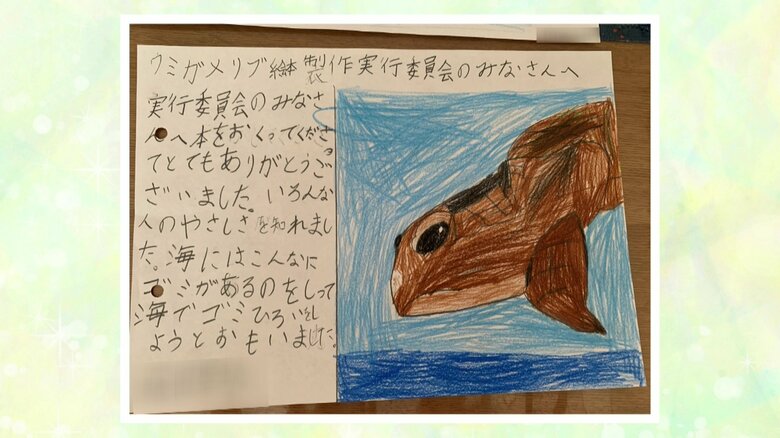 ウミガメリブ絵本製作実行委員会のみなさんへ
実行委員会のみなさ
んへ本をおくってくださっ
てとてもありがとうご
ざいました。いろんな
人のやさしさを知れまし
た。海にはこんなに
ゴミがあるのをしって
海でゴミひろいをし
ようとおもいました。